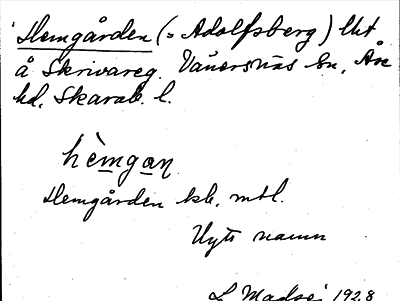 Hemgården (= Adolfsberg) lht
å Skrivareg. Vänersnäs sn, Åse
hd, Skarab. l.
hèmgan
Hemgården kb, mtl.
Nytt namn
1928